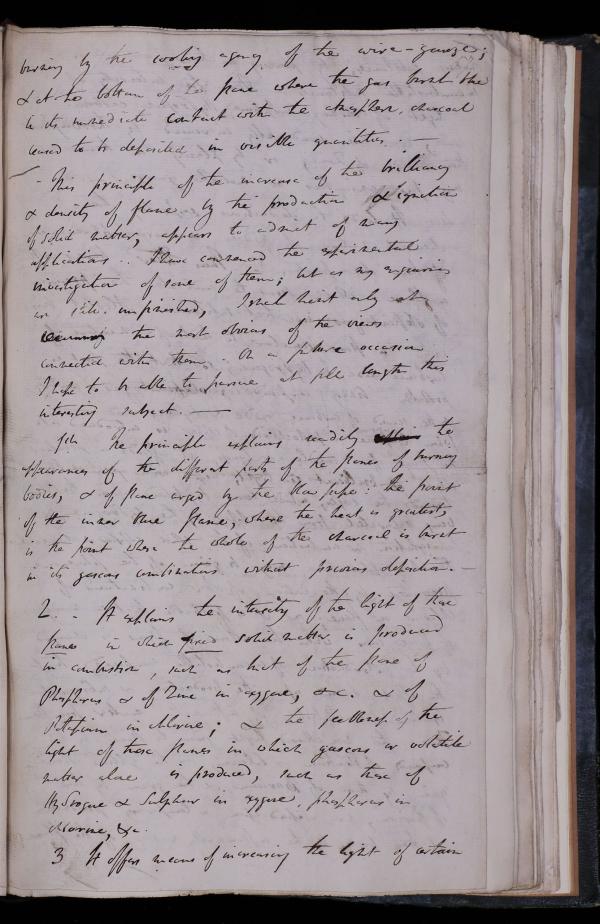 burning by the cooling agency of the wire-gauze;
& at the bottom of the flame where the gas burnt blue
in its immediate contact with the atmosphere, charcoal
ceased to be deposited in visible quantities. —
- This principle of the increase of the brilliancy
& density of flame by the production & ignition
of solid matter, appears to admit of many
applications.. I have commenced the experimental
investigation of some of them; but as my enquiries
are still unfinished, I shall hint only at
the most obvious of the views
connected with them. - On a future occasion
I hope to be able to pursue at full length this
interesting subject. —
1st. The principle explains readily the
appearances of the different parts of the flames of burning
bodies, & of flame urged by the blow pipe: the point
of the inner blue flame, where the heat is greatest,
is the point where the whole of the charcoal is burnt
in its gaseous combinations without previous deposition. —
2. - It explains the intensity of the light of those
flames in which fixed solid matter is produced
in combustion, such as that of the flame of
Phosphorus & of Zinc in oxygene, &c. & of
Potassium in chlorine; & the feebleness of the
light of those flames in which gaseous or volatile
matter alone is produced, such as those of
Hydrogene & Sulphur in oxygene, phosphorus in
chlorine, &c.
3 It offers means of increasing the light of certain